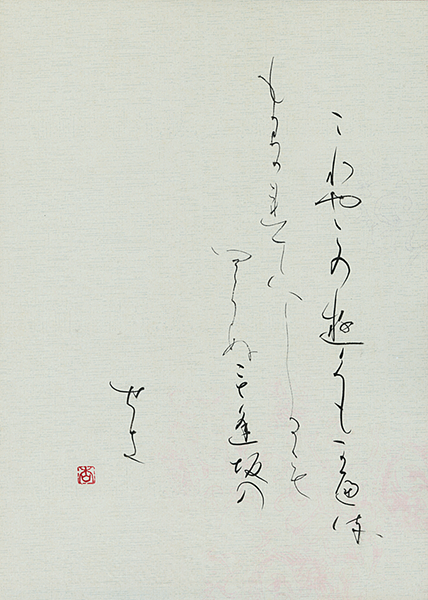 これやこの遊くも可遍る
もわか連てハしるも
しらぬも逢坂の
せき